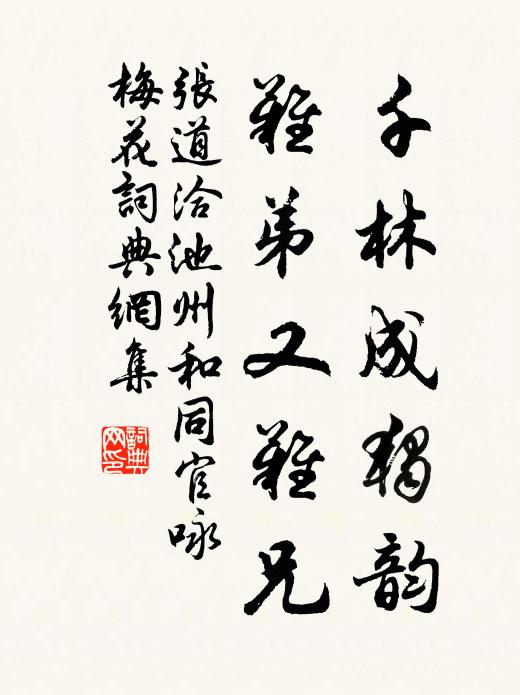 千林成独韵
難弟又難兄
張道洽池州和同官咏
梅花詞典網集
詞典
网印